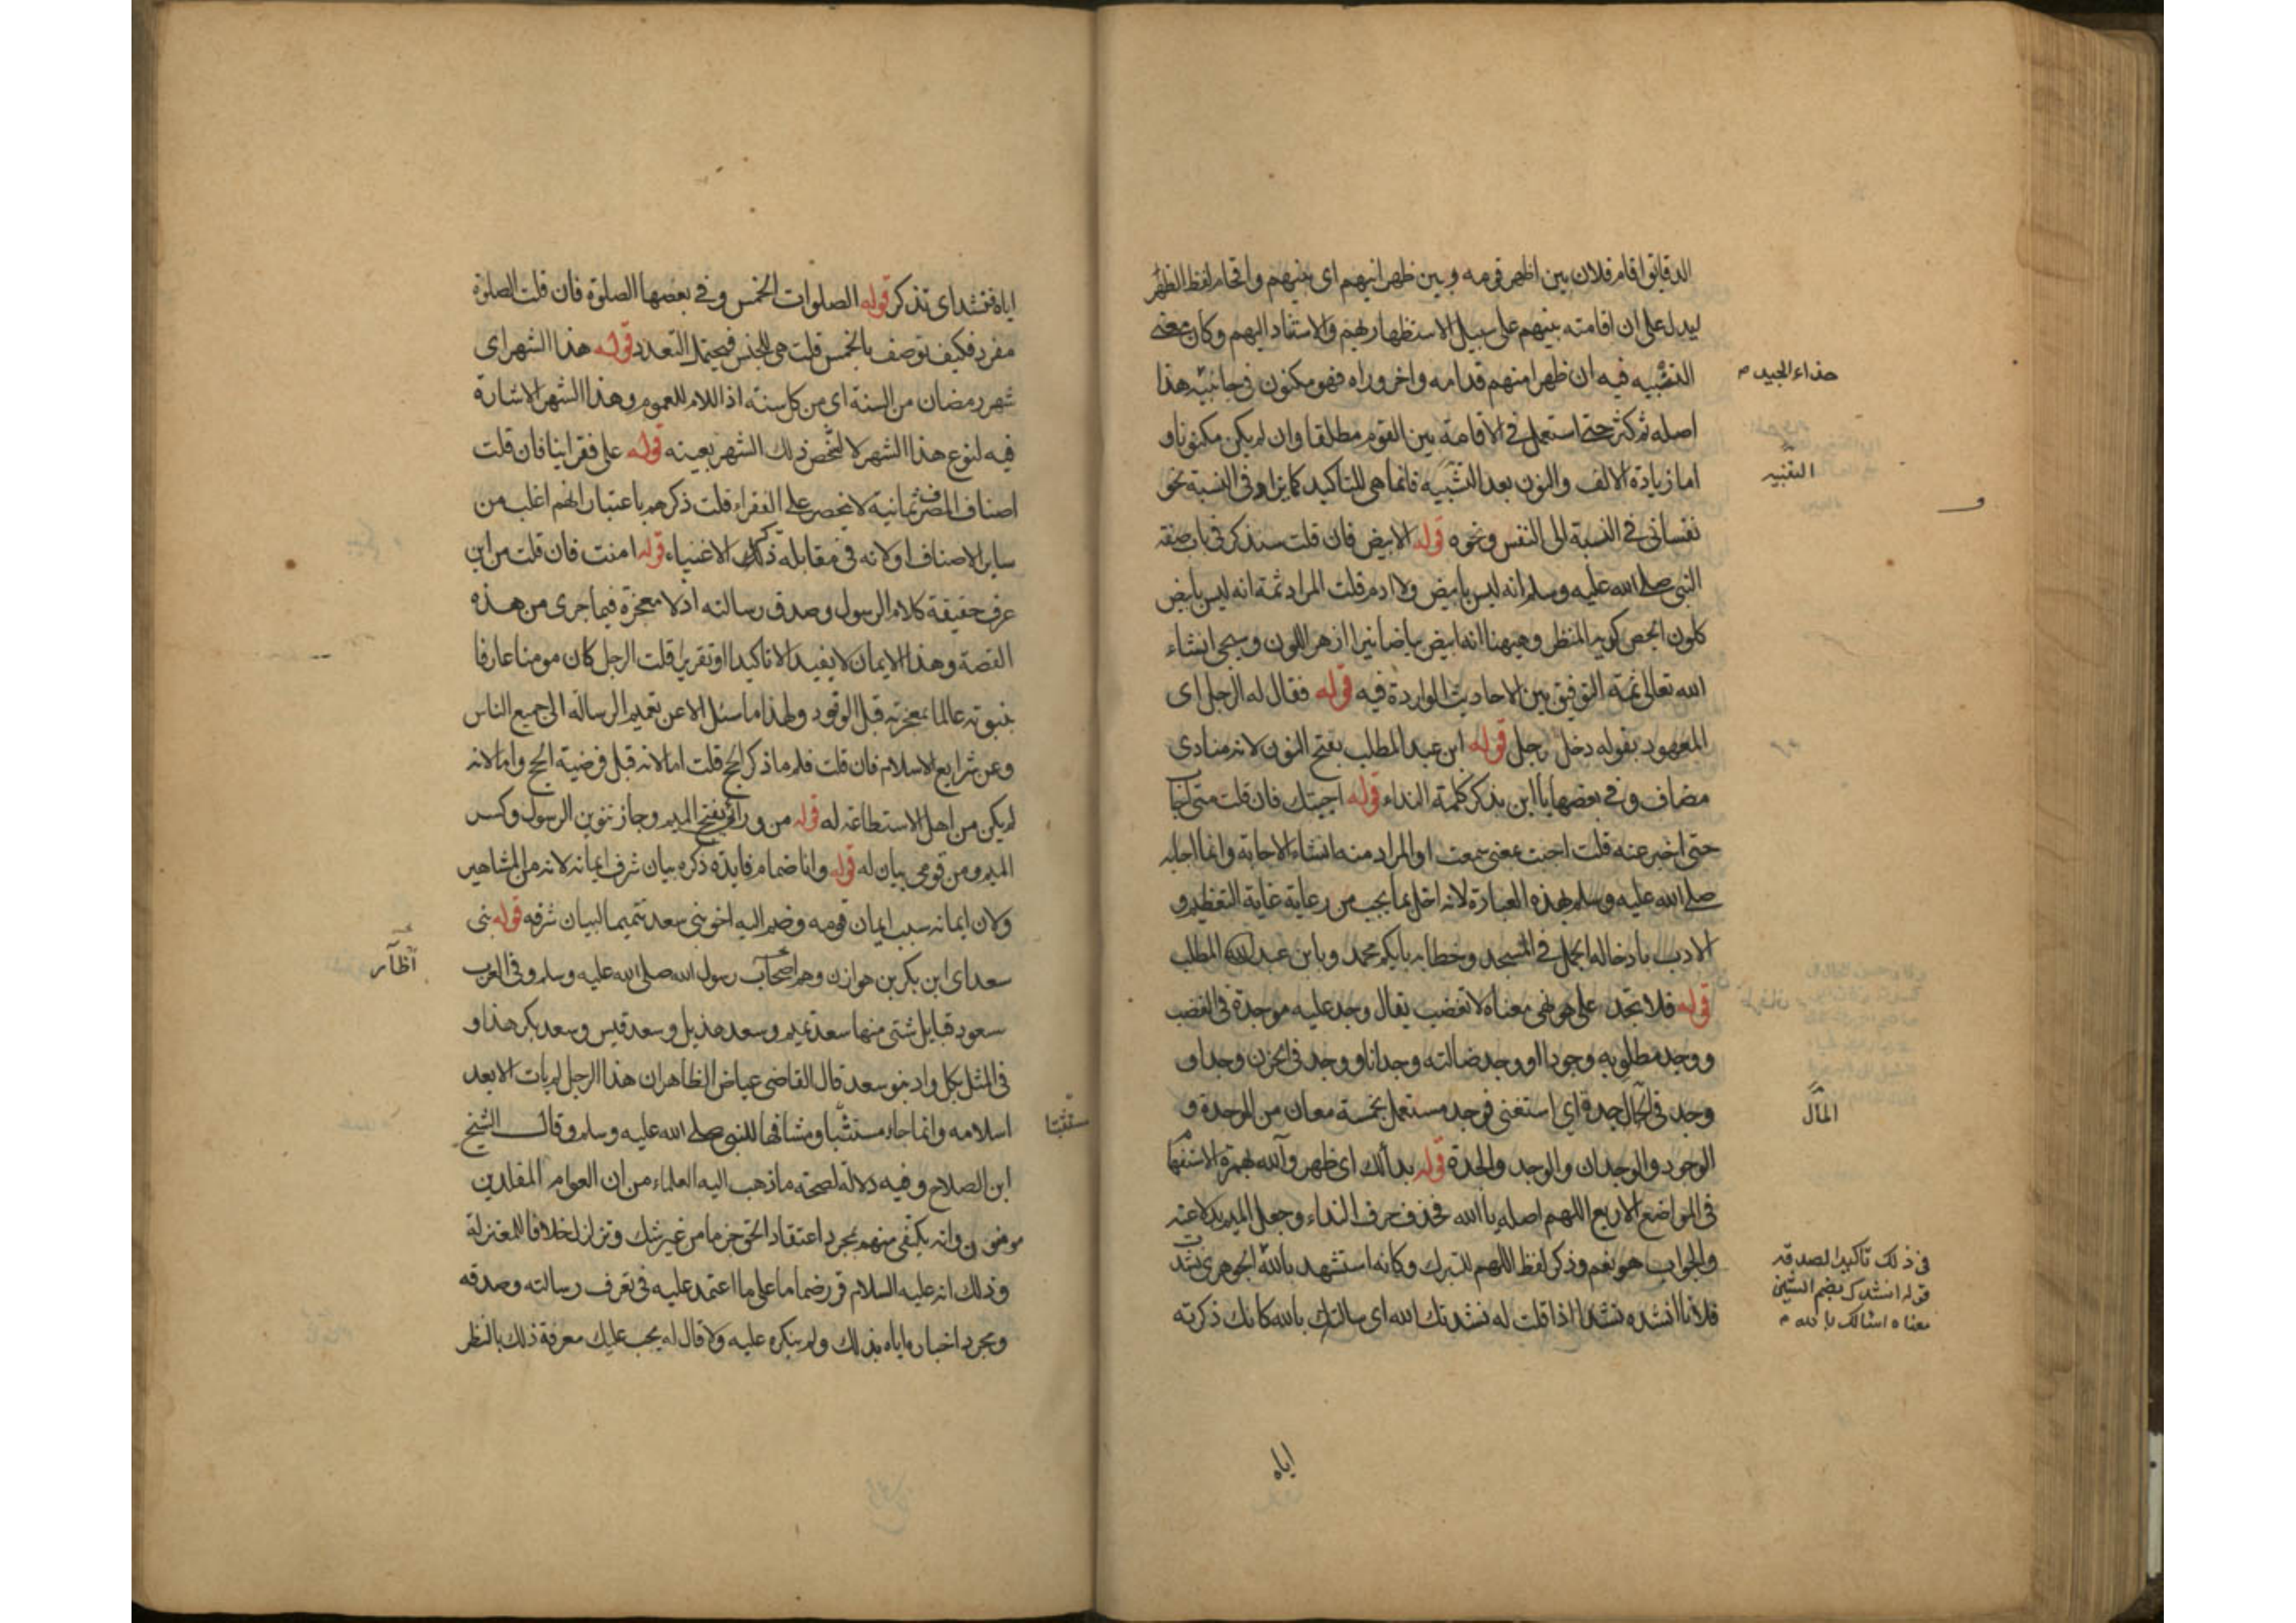 الدقايق اقام فلان بين اظهر قومه وبين ظهرانيهم اى بينهم واقحام لفظ الظهر
ليدل على ان اقامته بينهم على سبيل الاستظهار بهم والاستناد اليهم وكان معنى
التثنيه فيه ان ظهرا منهم قدامه واخر وراه فهو مكنون فى جانبيه هذا
اصله ثم كثر حتى استعمل فى الاقامة بين القوم مطلقا وان لم يكن مكنونا و
اما زيادة الالف والنون بعد التثنيه فانما هى للتاكيد كما يزاد فى النسبة نحو
نفسانى فى النسبة الى النفس ونحوه قوله الابيض فان قلت سنذكر فى باب صفة
النبى صلى الله عليه وسلم انه ليس بابيض ولا ادم قلت المراد ثمة انه ليس بابيض
كلون الجص كريه المنظر وههنا انه ابيض بياضا نيرا ازهر اللون وسيجى انشاء
الله تعالى ثمة التوفيق بين الاحاديث الواردة فيه قوله فقال له الرجل اى
المعهود بقوله دخل رجل قوله ابن عبد المطلب بفتح النون لانه منادى
مضاف وفى بعضها يا ابن بذكر كلمة النداء قوله اجبتك فان قلت متى اجاب
حتى اخبر عنه قلت اجبت بمعنى سمعت او المراد منه انشاء الاجابة وانما اجابه
صلى الله عليه وسلم بهذه العبارة لانه اخل بما يجب من رعاية غاية التعظيم و
الادب بادخاله الجمل فى المسجد وخطابه بايكم محمد وبابن عبد المطلب
قوله فلا تجد على هو نهى معناه لا تغضب يقال وجد عليه موجدة فى الغضب
ووجد مطلوبه وجودا ووجد ضالته وجدانا ووجد فى الحزن وجدا و
وجد فى المال جدة اى استغنى فوجد مستعمل بخمسة معان من الموجدة و
الوجود والوجدان والوجد والجدة قوله بدا لك اى ظهر وآلله بهمزة الاستفهام
فى المواضع الاربع اللهم اصله يا الله فحذف حرف النداء وجعل الميم بدلا عنه
والجواب هو نعم وذكر لفظ اللهم للتبرك وكانه استشهد بالله الجوهرى نشدت
فلانا انشده نشدا اذا قلت له نشدتك الله اى سالتك بالله كانك ذكرته
حذاء الجيد م
التثنيه
المال
فى ذلك تاكيدا لصدقه
قوله انشدك بضم الشين
معناه اسالك بالله م
اياه
اياه فنشد اى تذكر قوله الصلوات الخمس وفى بعضها الصلوة فان قلت الصلوة
مفرد فكيف توصف بالخمس قلت هى للجنس فيحتمل التعدد قوله هذا الشهر اى
شهر رمضان من السنة اى من كل سنة اذ اللام للعموم وهذا الشهر الاشارة
فيه لنوع هذا الشهر لا لشخص ذلك الشهر بعينه قوله على فقراينا فان قلت
اصناف المصرف ثمانية لا تنحصر على الفقراء قلت ذكرهم باعتبار انهم اغلب من
ساير الاصناف او لانه فى مقابلة ذكر الاغنياء قوله امنت فان قلت من اين
عرف حقيقة كلام الرسول وصدق رسالته اذ لا معجزة فيما جرى من هذه
القصة وهذا الايمان لا يفيد الا تاكيدا او تقريرا قلت الرجل كان مومنا عارفا
بنبوته عالما بمعجزته قبل الوفود ولهذا ما سئل الا عن تعميم الرسالة الى جميع الناس
وعن شرايع الاسلام فان قلت فلم ما ذكر الحج قلت اما لانه قبل فرضية الحج واما لانه
لم يكن من اهل الاستطاعة له قوله من ورائى بفتح الميم وجاز تنوين الرسول وكسر
الميم ومن قومى بيان له قوله وانا ضمام فايدة ذكره بيان شرف ايمانه لانه من المشاهير
ولان ايمانه سبب ايمان قومه وضم اليه اخو بنى سعد تتميما لبيان شرفه قوله بنى
سعد اى ابن بكر بن هوازن وهم اصحاب رسول الله صلى الله عليه وسلم وفى العرب
سعود قبايل شتى منها سعد تميم وسعد هذيل وسعد قيس وسعد بكر هذا و
فى المثل بكل واد بنو سعد قال القاضى عياض الظاهر ان هذا الرجل لم يات الا بعد
اسلامه وانما جاء مستثبتا ومشافها للنبى صلى الله عليه وسلم وقال الشيخ
ابن الصلاح وفيه دلالة لصحة ما ذهب اليه العلماء من ان العوام المقلدين
مومنون وانه يكتفى منهم بمجرد اعتقاد الحق جزما من غير شك وتزلزل خلافا للمعتزلة
وذلك انه عليه السلام قرر ضماما على ما اعتمد عليه فى تعرف رسالته وصدقه
ومجرد اخباره اياه بذلك ولم ينكره عليه ولا قال له يجب عليك معرفة ذلك بالنظر
اظآر
مستثبتا